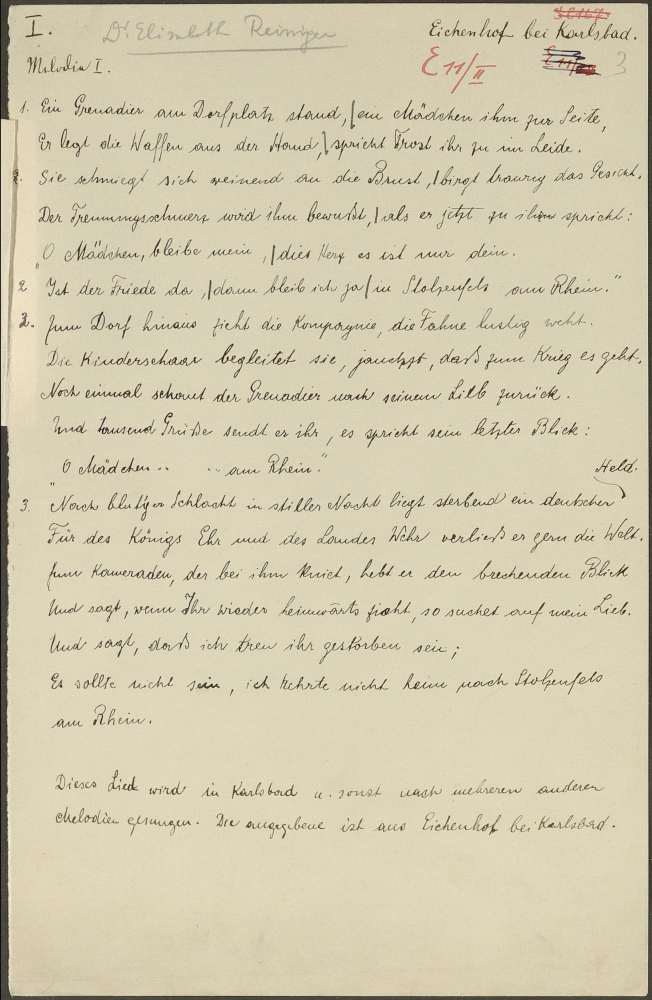 I. Dr Elisabeth Reiniger Eichenhof bei Karlsbad.
Melodie I. E 11/II 3
1. Ein Grenadier am Dorfplatz stand, | ein Mädchen ihm zur Seite,
Er legt die Waffen aus der Hand, | spricht Trost ihr zu im Leide.
Sie schmiegt sich weinend an die Brust, | birgt traurig das Gesicht.
Der Trennungsschmerz wird ihm bewußt, | als er jetzt zu ihr spricht:
"O Mädchen, bleibe mein, | dies Herz es ist nur dein.
Ist der Friede da, | dann bleib ich ja | in Stolzenfels am Rhein."
2. Zum Dorf hinaus zieht die Kompagnie, die Fahne lustig weht.
Die Kinderschaar begleitet sie, jauchzt, daß zum Krieg es geht.
Noch einmal schaut der Grenadier nach seinem Lieb zurück.
Und tausend Grüße sendt er ihr, es spricht sein letzter Blick:
"O Mädchen .. .. am Rhein."
3. Nach blut'ger Schlacht in stiller Nacht liegt sterbend ein deutscher Held.
Für des Königs Ehr und des Landes Wehr verließ er gern die Welt.
Zum Kameraden, der bei ihm kniet, hebt er den brechenden Blick
Und sagt, wenn Ihr wieder heimwärts zieht, so suchet auf mein Lieb.
Und sagt, daß ich treu ihr gestorben sein;
Es sollte nicht sein, ich kehrte nicht heim nach Stolzenfels
am Rhein.
Dieses Lied wird in Karlsbad u. sonst nach mehreren anderen
Melodien gesungen. Die angegebene ist aus Eichenhof bei Karlsbad.